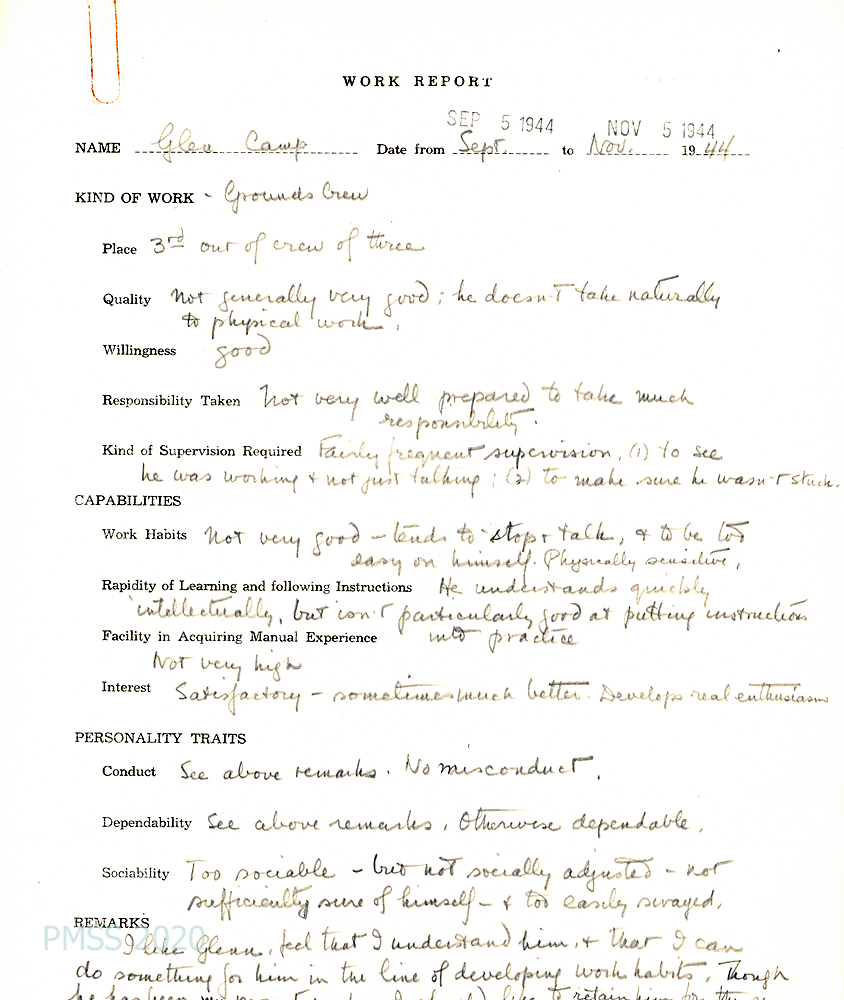 WORK REPORT
SEP 5 1944 NOV 5 1944
NAME Glen Camp Date from Sept. to Nov. 1944
KIND OF WORK - Grounds Crew
Place 3rd out of crew of three
Quality Not generally very good; he doesn't take naturally
to physical work.
Willingness good
Responsibility Taken Not very well prepared to take much
responsibility.
Kind of Supervision Required Fairly frequent supervision, (1) to see
he was working & not just talking; (2) to make sure he wasn't stuck.
CAPABILITIES
Work Habits Not very good - tends to stop & talk, & to be too
easy on himself. Physically sensitive,
Rapidity of Learning and following Instructions He understands quickly
intellectually, but isn't particularly good at putting instructions
Facility in Acquiring Manual Experience into practice
Not very high
Interest Satisfactory - sometimes much better. Develops real enthusiasm
PERSONALITY TRAITS
Conduct See above remarks. No misconduct.
Dependability See above remarks. Otherwise dependable.
Sociability Too sociable - but not socially adjusted - not
sufficiently sure of himself - & too easily swayed.
REMARKS
PMSS 2020
I like Glenn, feel that I understand him, & that I can
do something for him in the line of developing work habits. Though
he has been my to retain him for